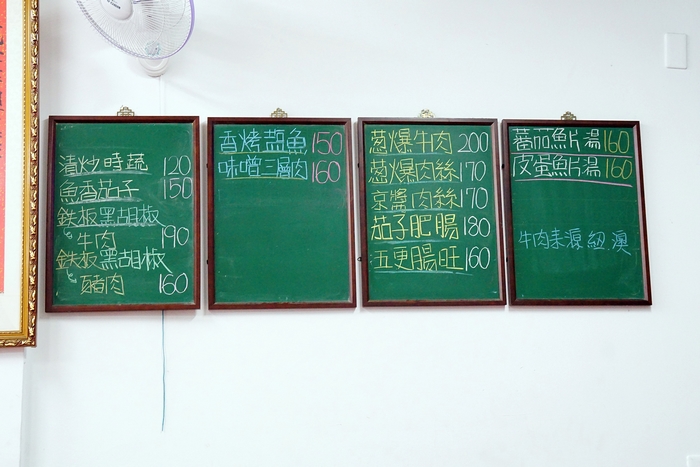 清炒時蔬 120
魚香茄子 150
鉄板黑胡椒
牛肉 190
鉄板黑胡椒
豬肉 160
香烤盐魚 150
味噌三層肉 160
葱爆牛肉 200
葱爆肉絲 170
京醬肉絲 170
茄子肥腸 180
五更腸旺 160
蕃茄魚片湯 160
皮蛋魚片湯 160
牛肉耒源 紐.澳